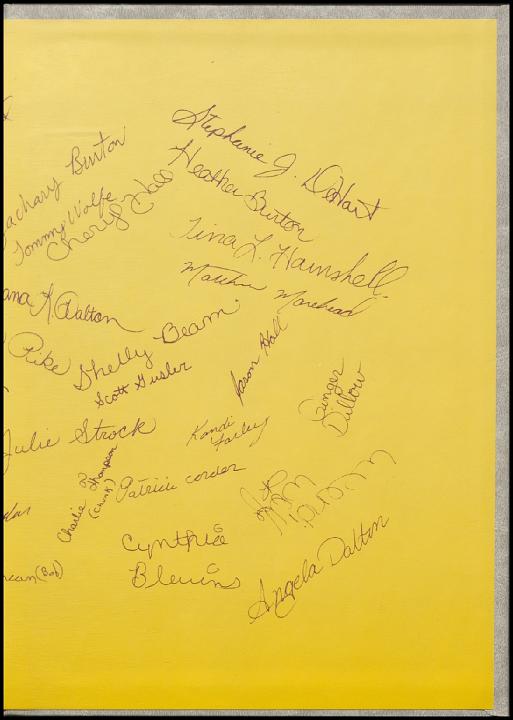 Stephanie J. DeHart
Zachary Burton
Heather Burton
Tommy Wolfe
Cheryl Hall
Tina L. Hamshell
Matthew Morehead
ana K Dalton
Pike
Shelly Beam
Scott Gusler
Jason Hall
Ginger
Dillow
Julie Strock
Kandi
Farley
Charlie Thompson
Patricia corder
Cynthia
Blevins
Angela Dalton
(Bob)